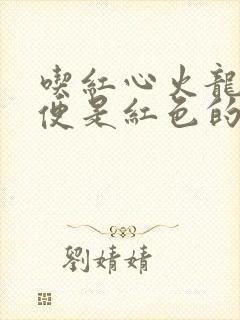 喫紅心火龍
便是紅色的
劉婧婧